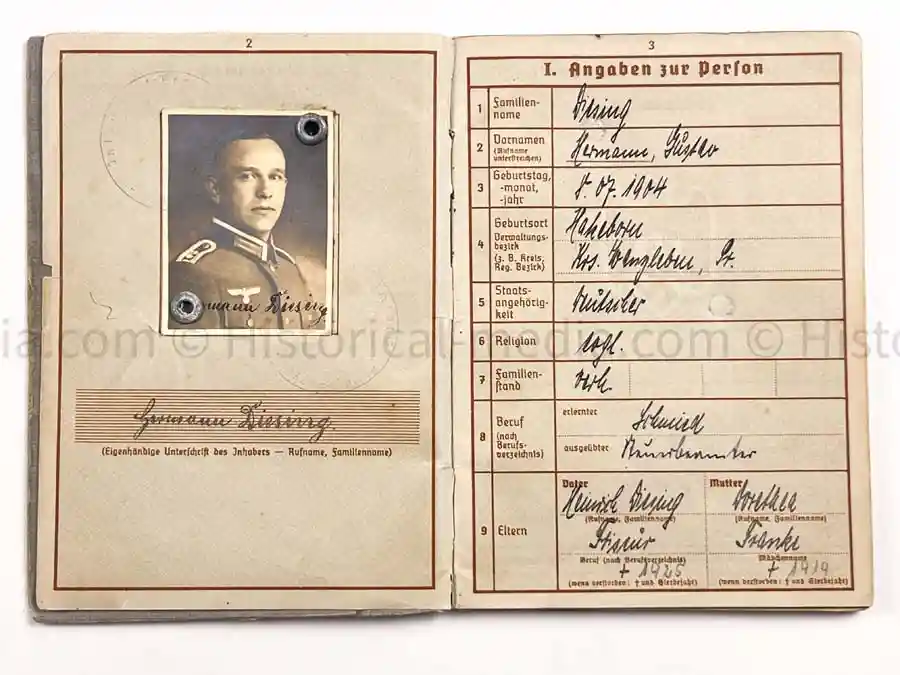 2
Hermann Diesing
Hermann Diesing
(Eigenhändige Unterschrift des Inhabers — Rufname, Familienname)
3
I. Angaben zur Person
1 Familien-
name
Diesing
2 Vornamen
(Rufname
unterstreichen)
Hermann, Gustav
3 Geburtstag,
-monat,
-jahr
8. 07. 1904
4 Geburtsort
Verwaltungs-
bezirk
(z. B. Kreis,
Reg. Bezirk)
Hakeborn
Krs. Wanzleben, Pr.
5 Staats-
angehörig-
keit
Deutscher
6 Religion
evgl.
7 Familien-
stand
verh.
8 Beruf
(nach
Berufs-
verzeichnis)
erlernter
Schmied
ausgeübter
9 Eltern
Vater
Heinrich Diesing
(Rufname, Familienname)
Beruf (nach Berufsverzeichnis)
† 1925
(wenn verstorben: † und Sterbejahr)
Mutter
Dorothea
(Rufname, Familienname)
Franke
Mädchenname
† 1919
(wenn verstorben: † und Sterbejahr)
ia.com © Historical-media.com © Histori